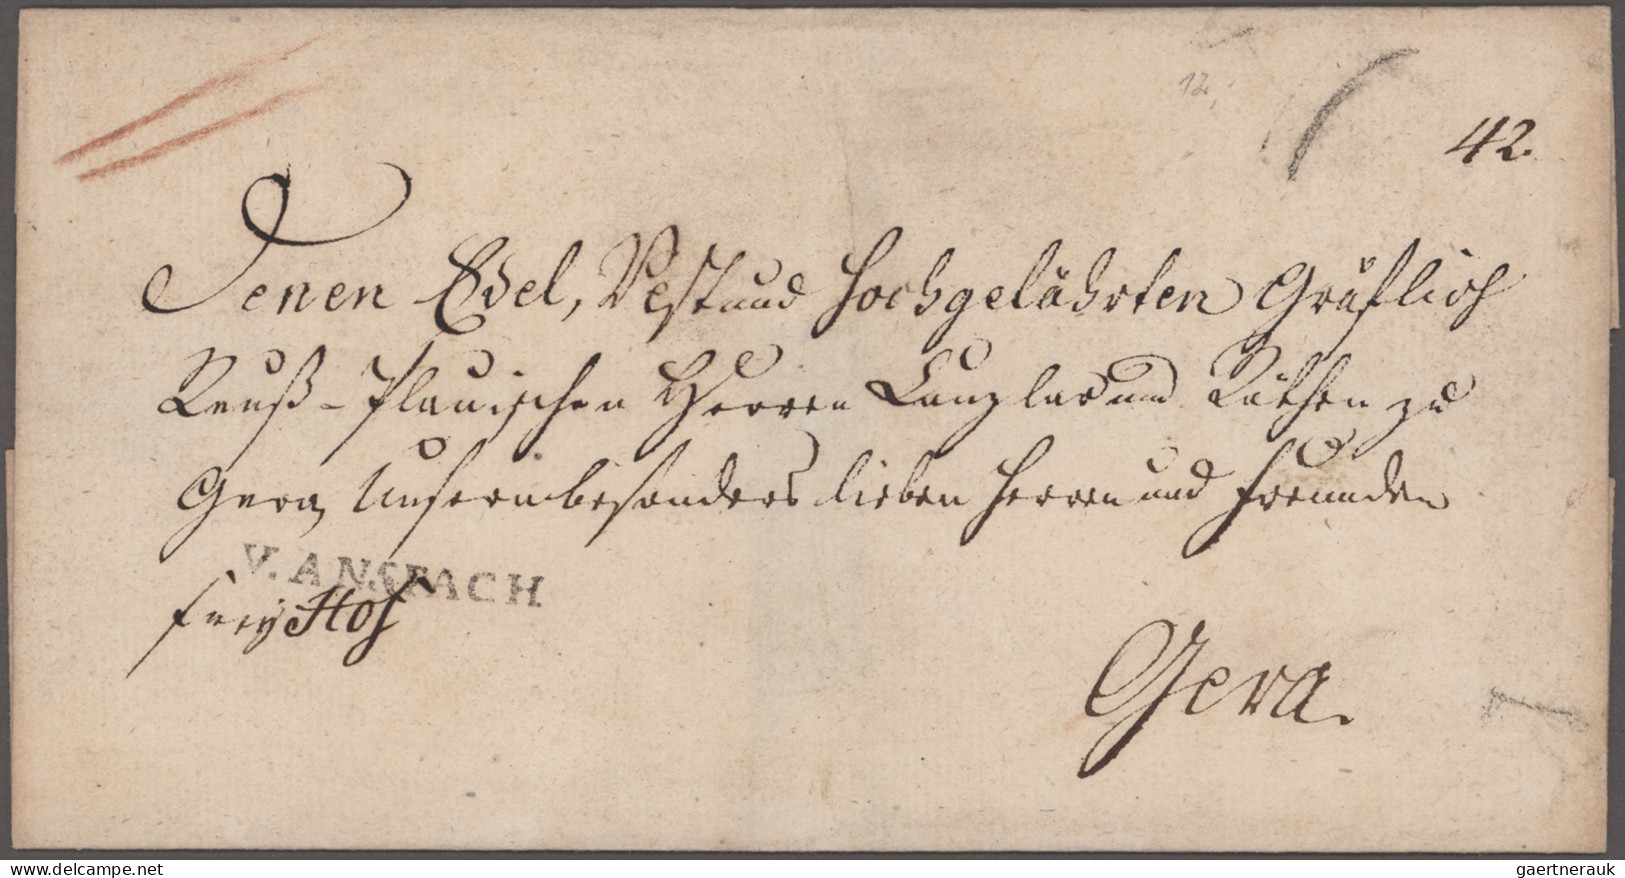 12.
42.
Denen Edel, Vest und Hochgelährten Gräflich
Reuß-Plauischen Herren Canzlar und Räthen zu
Gera, Unsern besonders lieben Herren und Freunden
V. ANSPACH
frey Hof
Gera.
delcampe.net
gaertnerauk